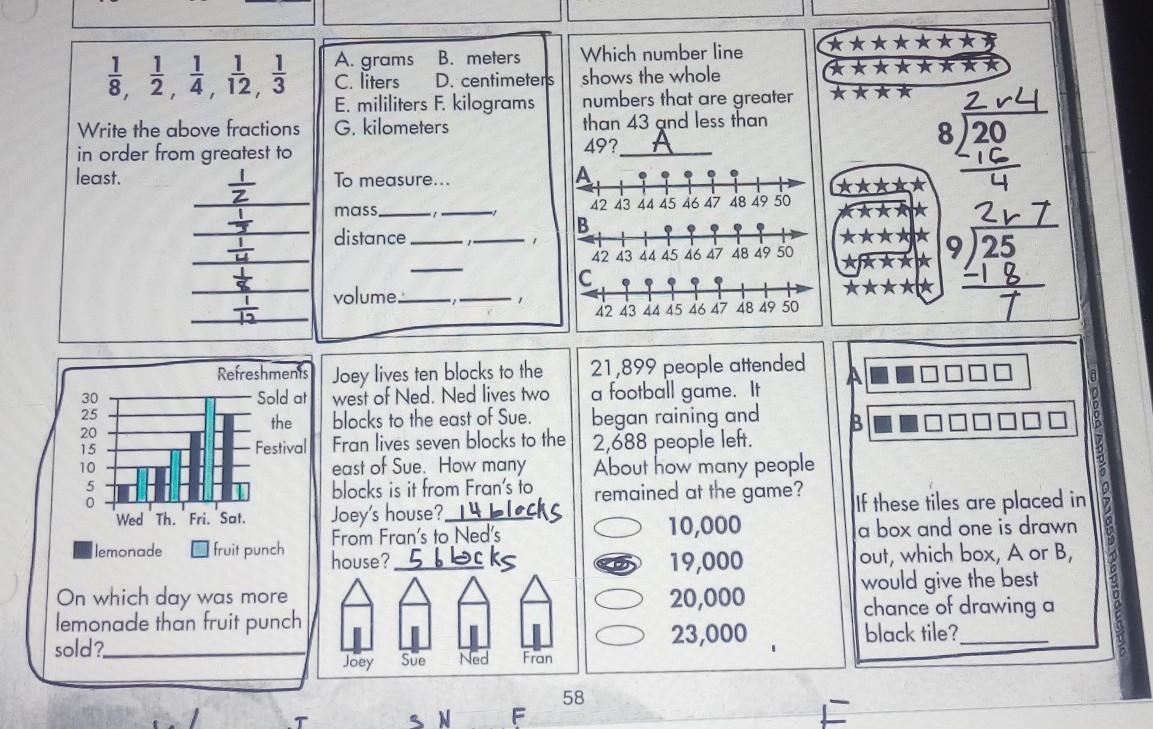 1/8, 1/2, 1/4, 1/12, 1/3
Write the above fractions
in order from greatest to
least.
1/2
1/3
1/4
1/8
1/12
A. grams B. meters
C. liters D. centimeters
E. mililiters F. kilograms
G. kilometers
To measure...
mass______, ______,
distance ______, ______,
______
volume______, ______,
Which number line
shows the whole
numbers that are greater
than 43 and less than
49? A
A
42 43 44 45 46 47 48 49 50
B
42 43 44 45 46 47 48 49 50
C
42 43 44 45 46 47 48 49 50
2 r4
8)20
-16
4
2 r 7
9)25
-18
7
Refreshments
Sold at
the
Festival
30
25
20
15
10
5
0
Wed Th. Fri. Sat.
lemonade fruit punch
On which day was more
lemonade than fruit punch
sold?______
Joey lives ten blocks to the
west of Ned. Ned lives two
blocks to the east of Sue.
Fran lives seven blocks to the
east of Sue. How many
blocks is it from Fran's to
Joey's house? 14 blocks
From Fran's to Ned's
house? 5 blocks
Joey Sue Ned Fran
21,899 people attended
a football game. It
began raining and
2,688 people left.
About how many people
remained at the game?
10,000
19,000
20,000
23,000
A
B
If these tiles are placed in
a box and one is drawn
out, which box, A or B,
would give the best
chance of drawing a
black tile?______
58
S N F